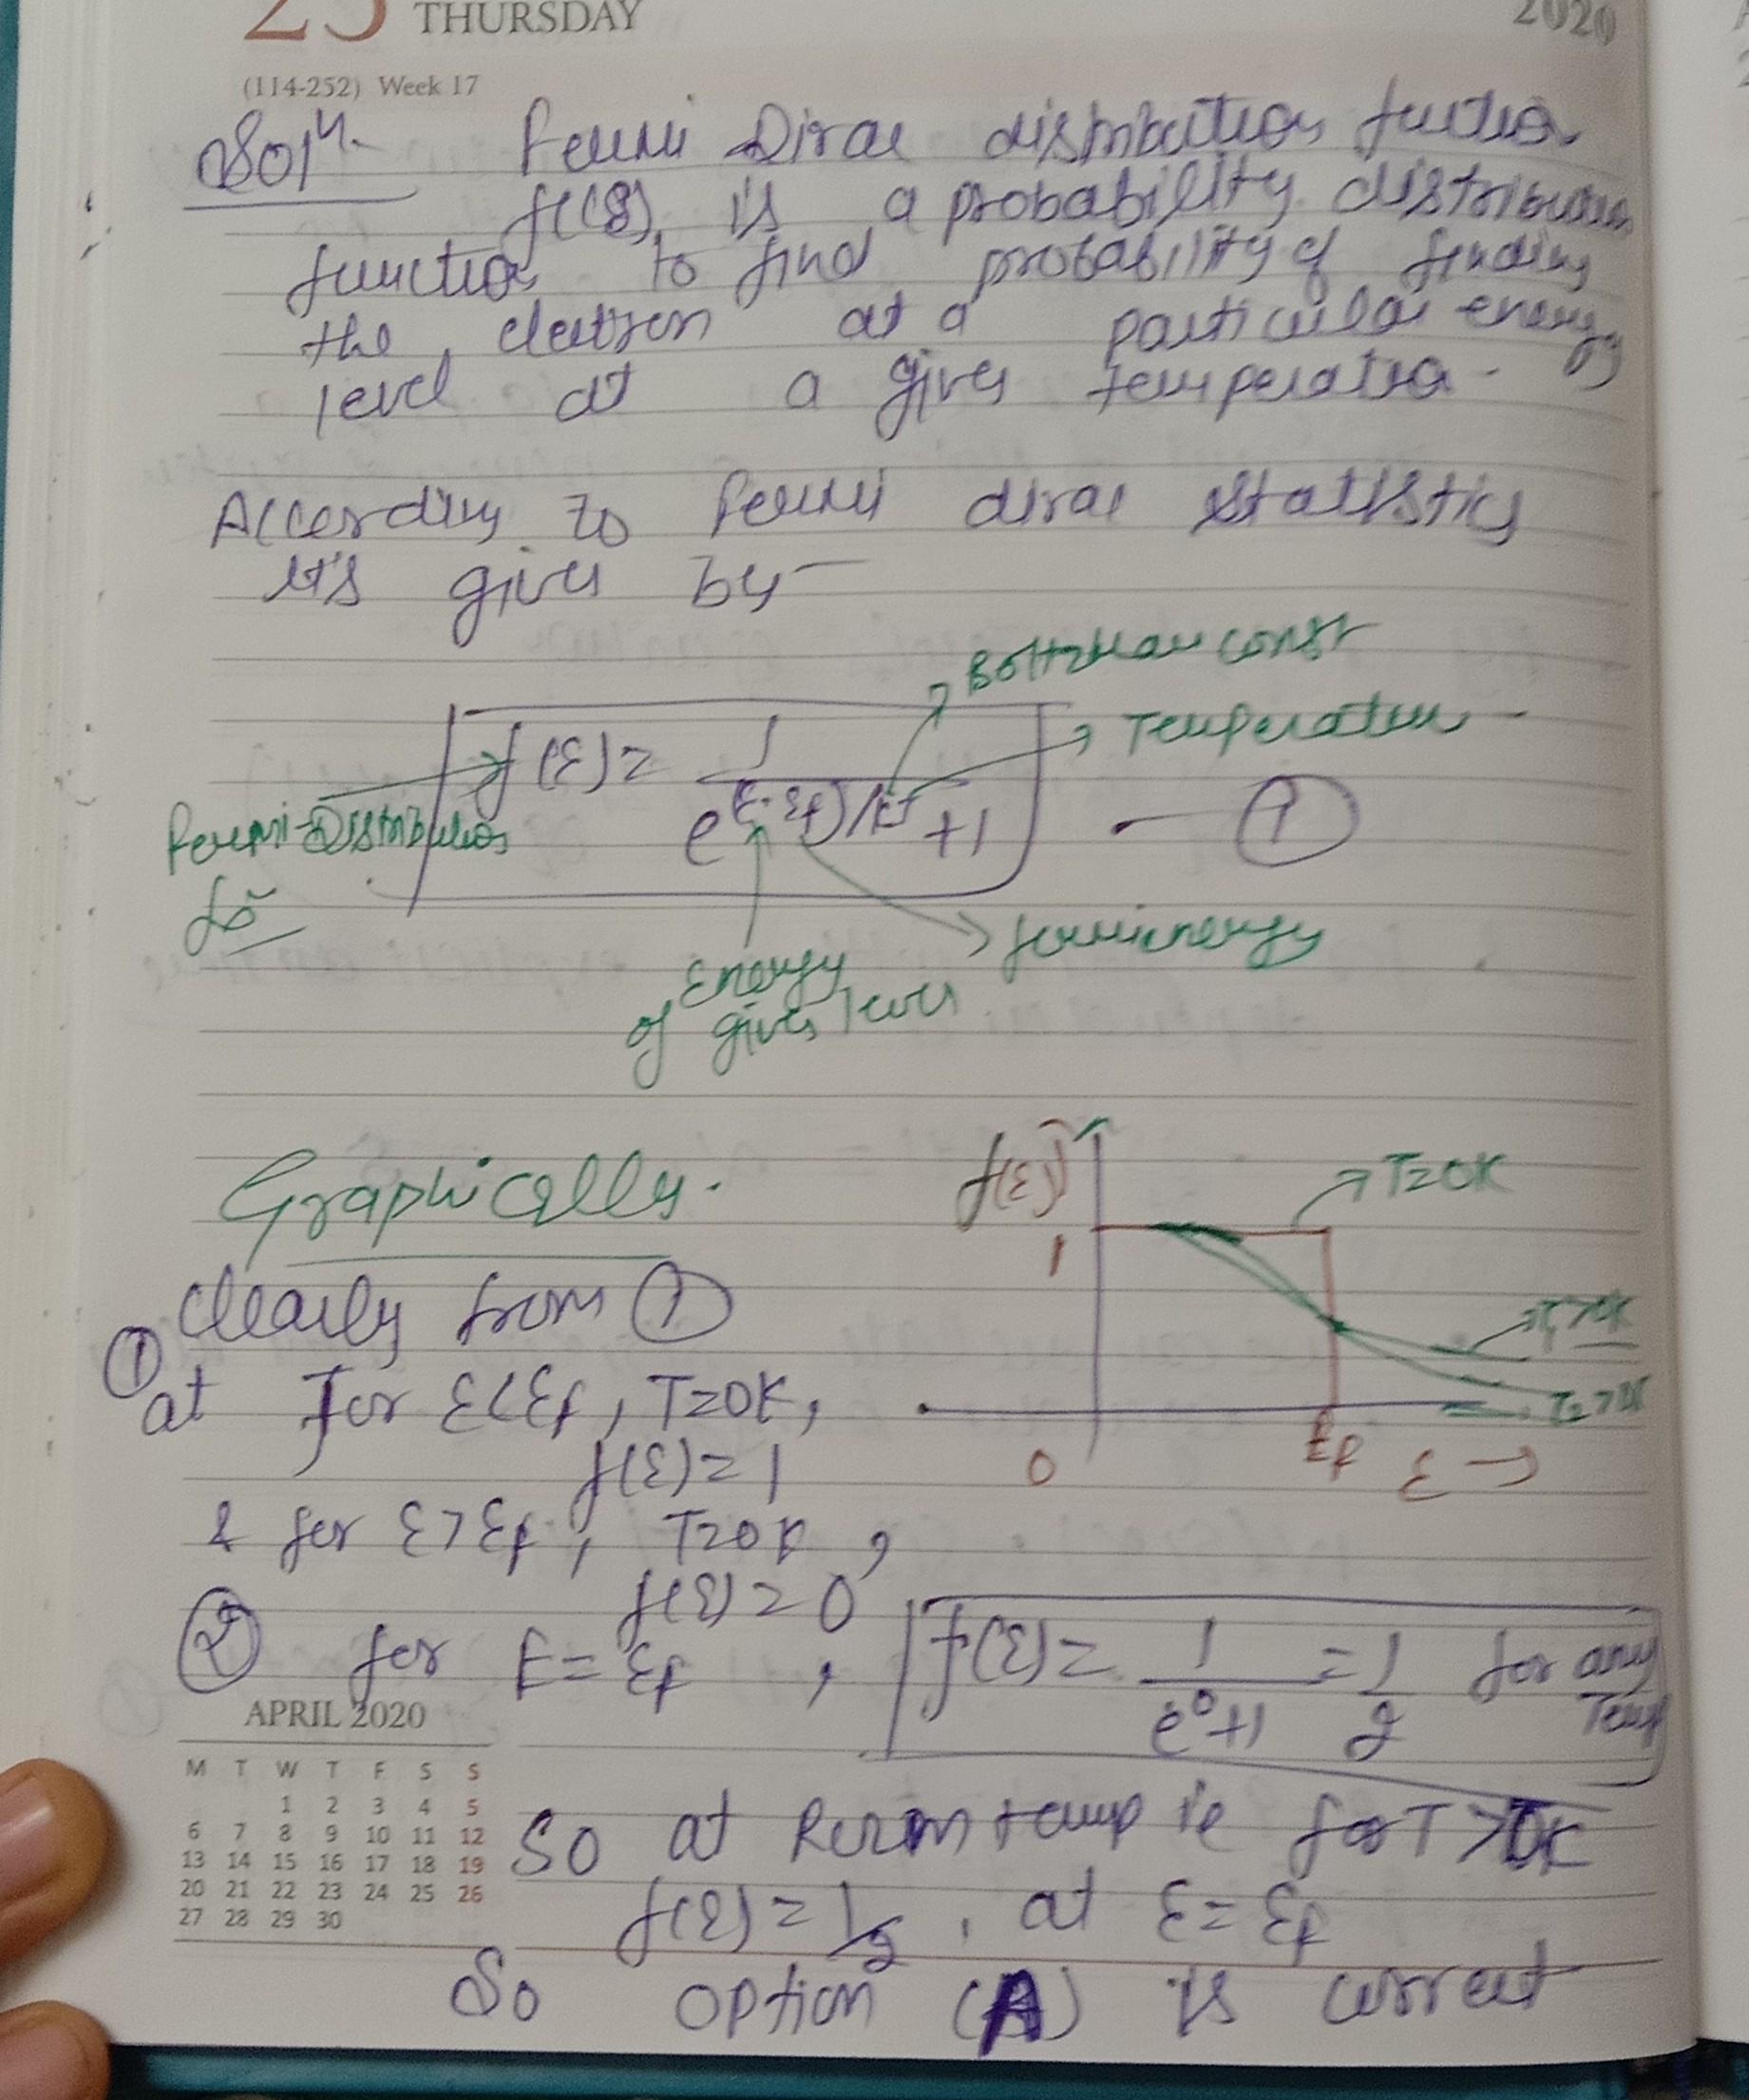 23 THURSDAY 2020
(114-252) Week 17
Solⁿ- Fermi Dirac distribution function
f(ε) is a probability distribution
function to find probability of finding
the electron at a particular energy
level at a given temperature.
According to Fermi dirac statistics
it's given by-
Boltzman const
f(ε) = 1 / (e^(ε-εf)/kT + 1) Temperature
Fermi-Distribution fⁿ
①
fermi energy
Energy
of given level
Graphically.
f(ε)
T=0K
1
T₁>0K
T₂>0K
0 Ef ε →
Clearly from ①
① at for ε<εf, T=0K,
f(ε) = 1
& for ε>εf, T=0K,
f(ε) = 0
② for E = εf, f(ε) = 1/(e⁰+1) = 1/2 for any Temp
APRIL 2020
M T W T F S S
1 2 3 4 5
6 7 8 9 10 11 12
13 14 15 16 17 18 19
20 21 22 23 24 25 26
27 28 29 30
So at Room temp ie for T>0K
f(ε) = 1/2, at ε = εf
So option (A) is correct